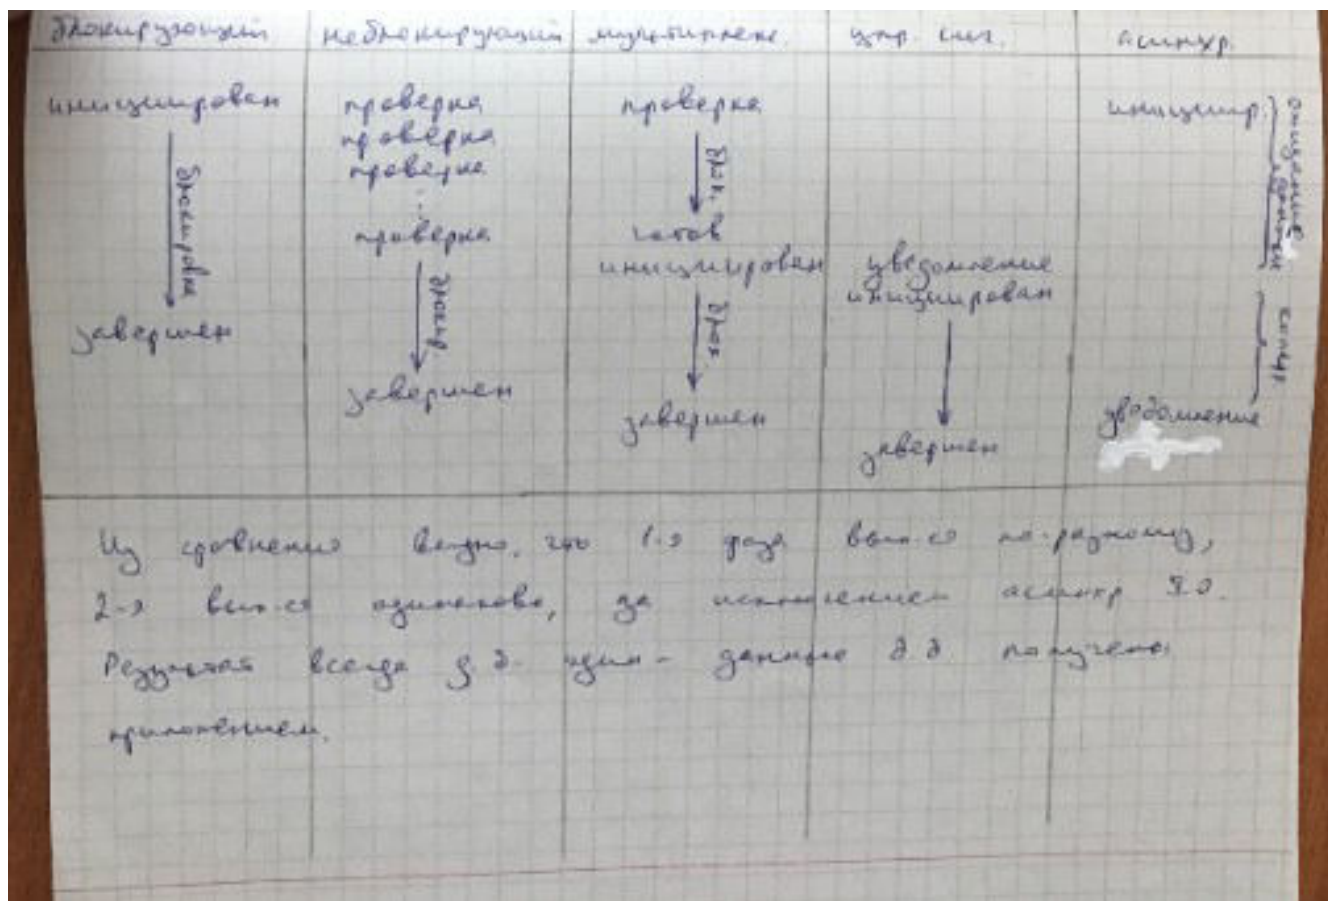 блокирующий неблокирующий мультиплекс. упр. сиг. асинхр.
инициирован
блокировка
завершен
проверка
проверка
проверка
...
проверка
блокир
завершен
проверка
блок.
готов
инициирован
блок.
завершен
уведомление
инициирован
завершен
инициир.
ожидание
данных
копир
уведомление
Из сравнения видно, что 1-я фаза вып-ся по-разному,
2-я вып-ся одинаково, за исключением асинхр I.O.
Результат всегда д.б. один - данные д.б получены
приложением.